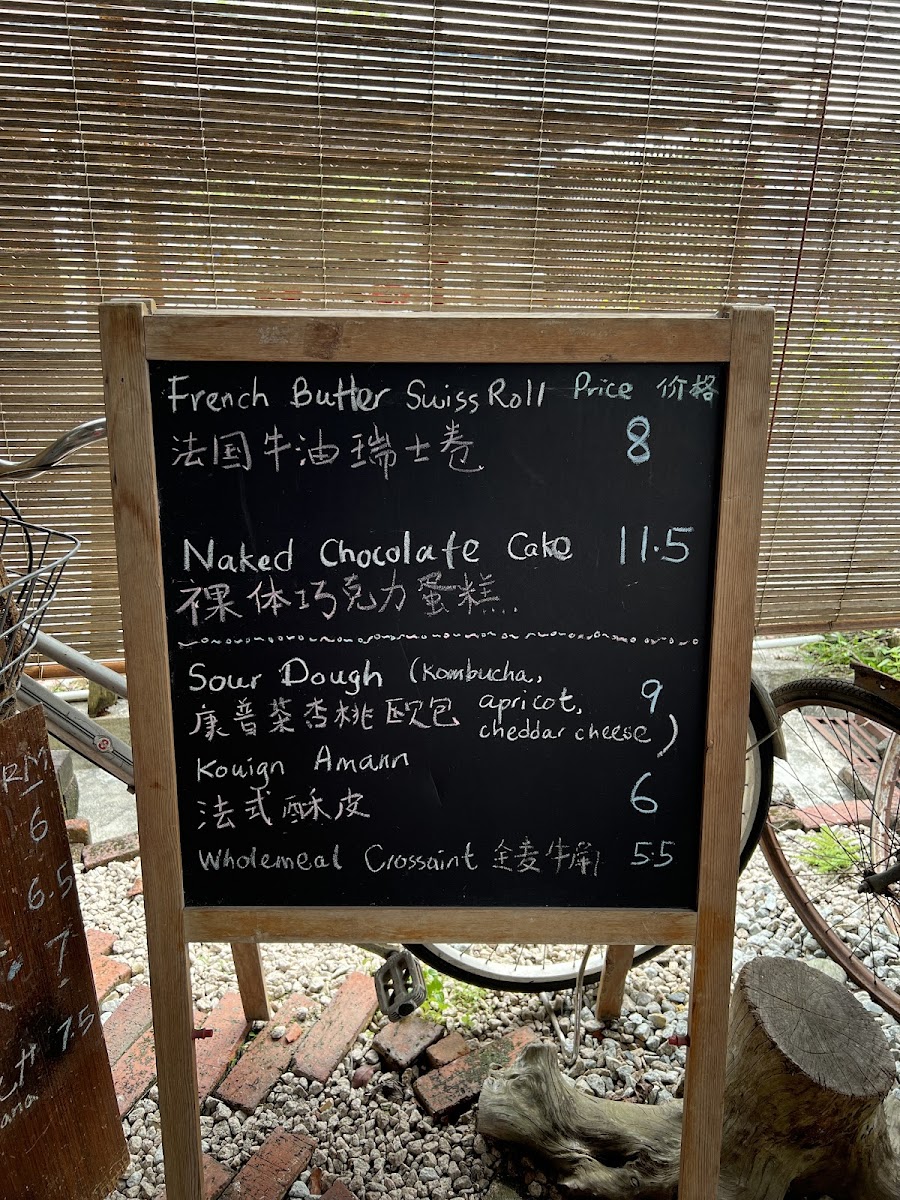 French Butter Swiss Roll Price 价格
法国牛油瑞士卷 8
Naked Chocolate Cake 11.5
裸体巧克力蛋糕
Sour Dough (Kombucha,
康普菜杏桃欧包 apricot, 9
cheddar cheese)
Kouign Amann
法式酥皮 6
Wholemeal Crossaint 全麦牛角 5.5
RM
6
6.5
7
7.5